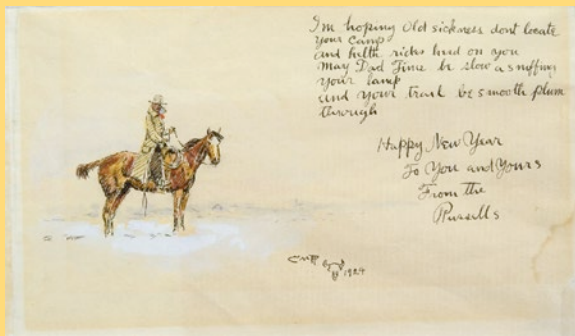 I'm hoping Old sicknees dont locate
your camp
and helth rides herd on you
May Dad Time be slow a snuffing
your lamp
and your trail be smooth plum
through
Happy New Year
To You and Yours
From the
Russells
CMR
1924